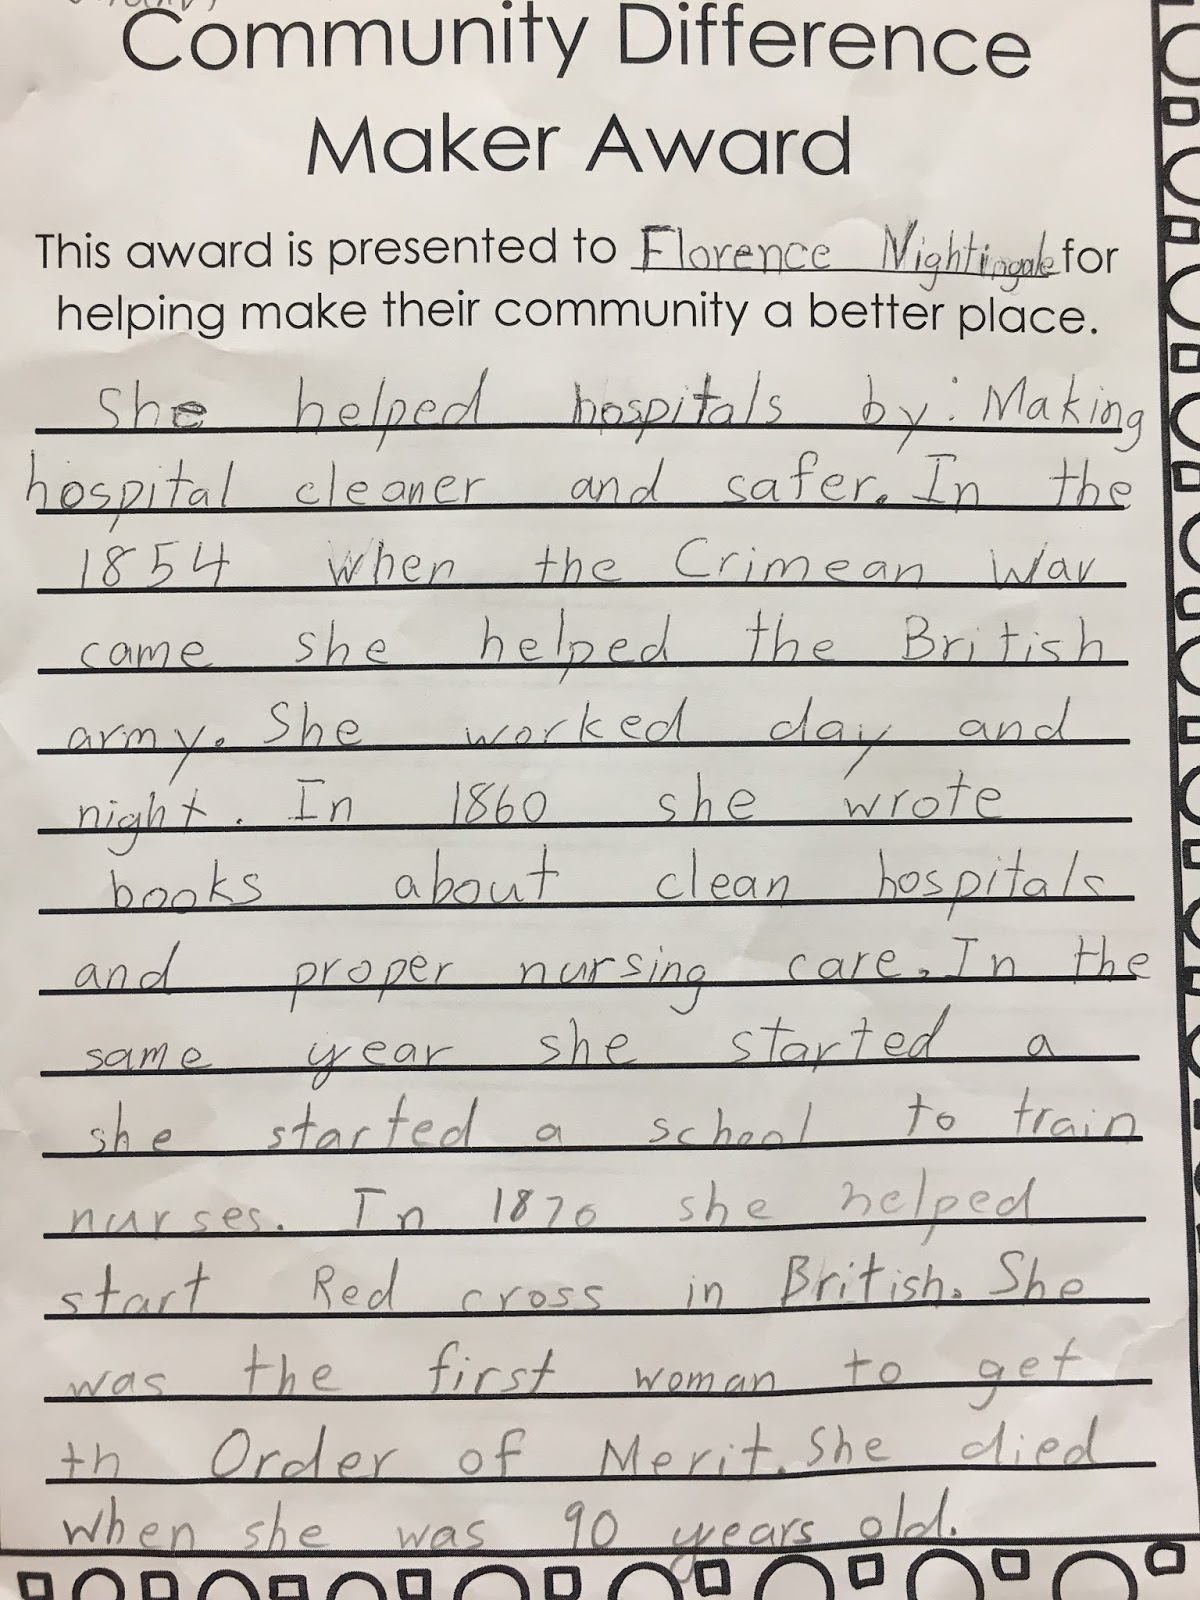 Community Difference
Maker Award
This award is presented to Florence Nightingale for
helping make their community a better place.
She helped hospitals by: Making
hospital cleaner and safer. In the
1854 when the Crimean War
came she helped the British
army. She worked day and
night. In 1860 she wrote
books about clean hospitals
and proper nursing care. In the
same year she started a
she started a school to train
nurses. In 1870 she helped
start Red cross in British. She
was the first woman to get
th Order of Merit. She died
when she was 90 years old.